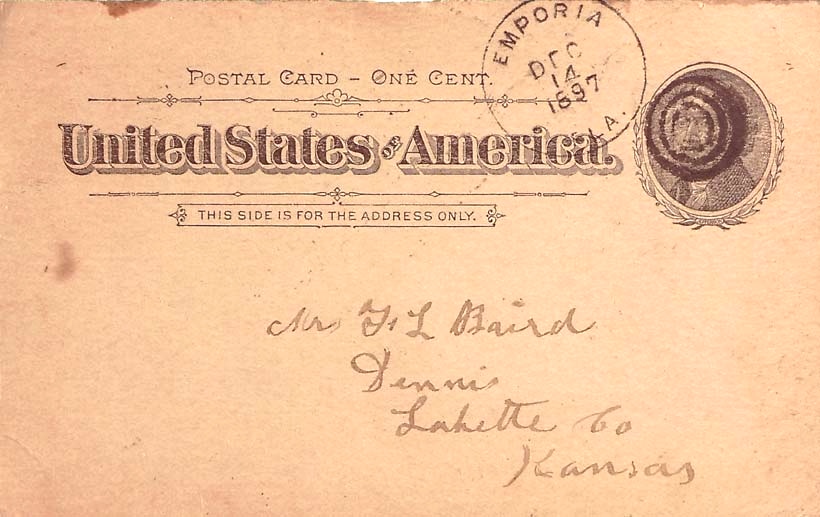 EMPORIA
DEC
14
1897
POSTAL CARD - ONE CENT.
United States OF America.
THIS SIDE IS FOR THE ADDRESS ONLY.
Mrs F. L Baird
Dennis
Labette Co
Kansas